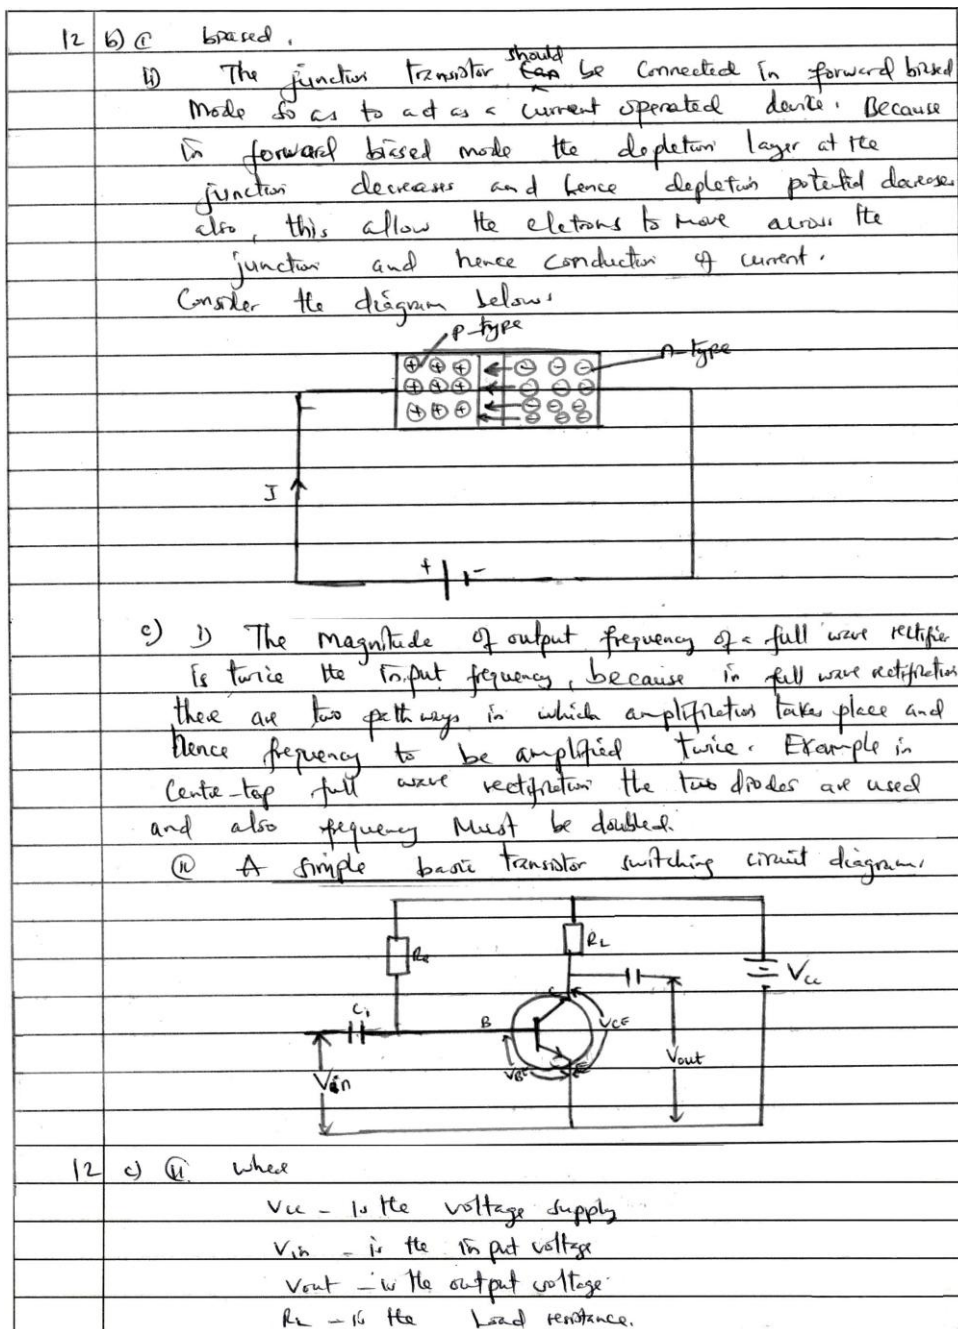 12 b) (i) biased.
ii) The junction transistor should can be connected in forward biased
mode so as to act as a current operated device. Because
in forward biased mode the depletion layer at the
junction decreases and hence depletion potential decreases
also, this allow the eletrons to move across the
junction and hence conduction of current.
Consider the diagram below:
P-type
n-type
+ + + - - -
+ + + - - -
+ + + - - -
- - -
I
+ -
c) i) The magnitude of output frequency of a full wave rectifier
is twice the input frequency, because in full wave rectification
there are two path ways in which amplification takes place and
hence frequency to be amplified twice. Example in
Centre-tap full wave rectification the two diodes are used
and also frequency must be doubled.
(ii) A simple basic transistor switching circuit diagram.
RL
Vcc
C1
B
C
VCE
VBE
E
Vin
Vout
12 c) (ii) Where
Vcc - is the voltage supply
Vin - is the in put voltage
Vout - is the output voltage
RL - is the Load resistance.